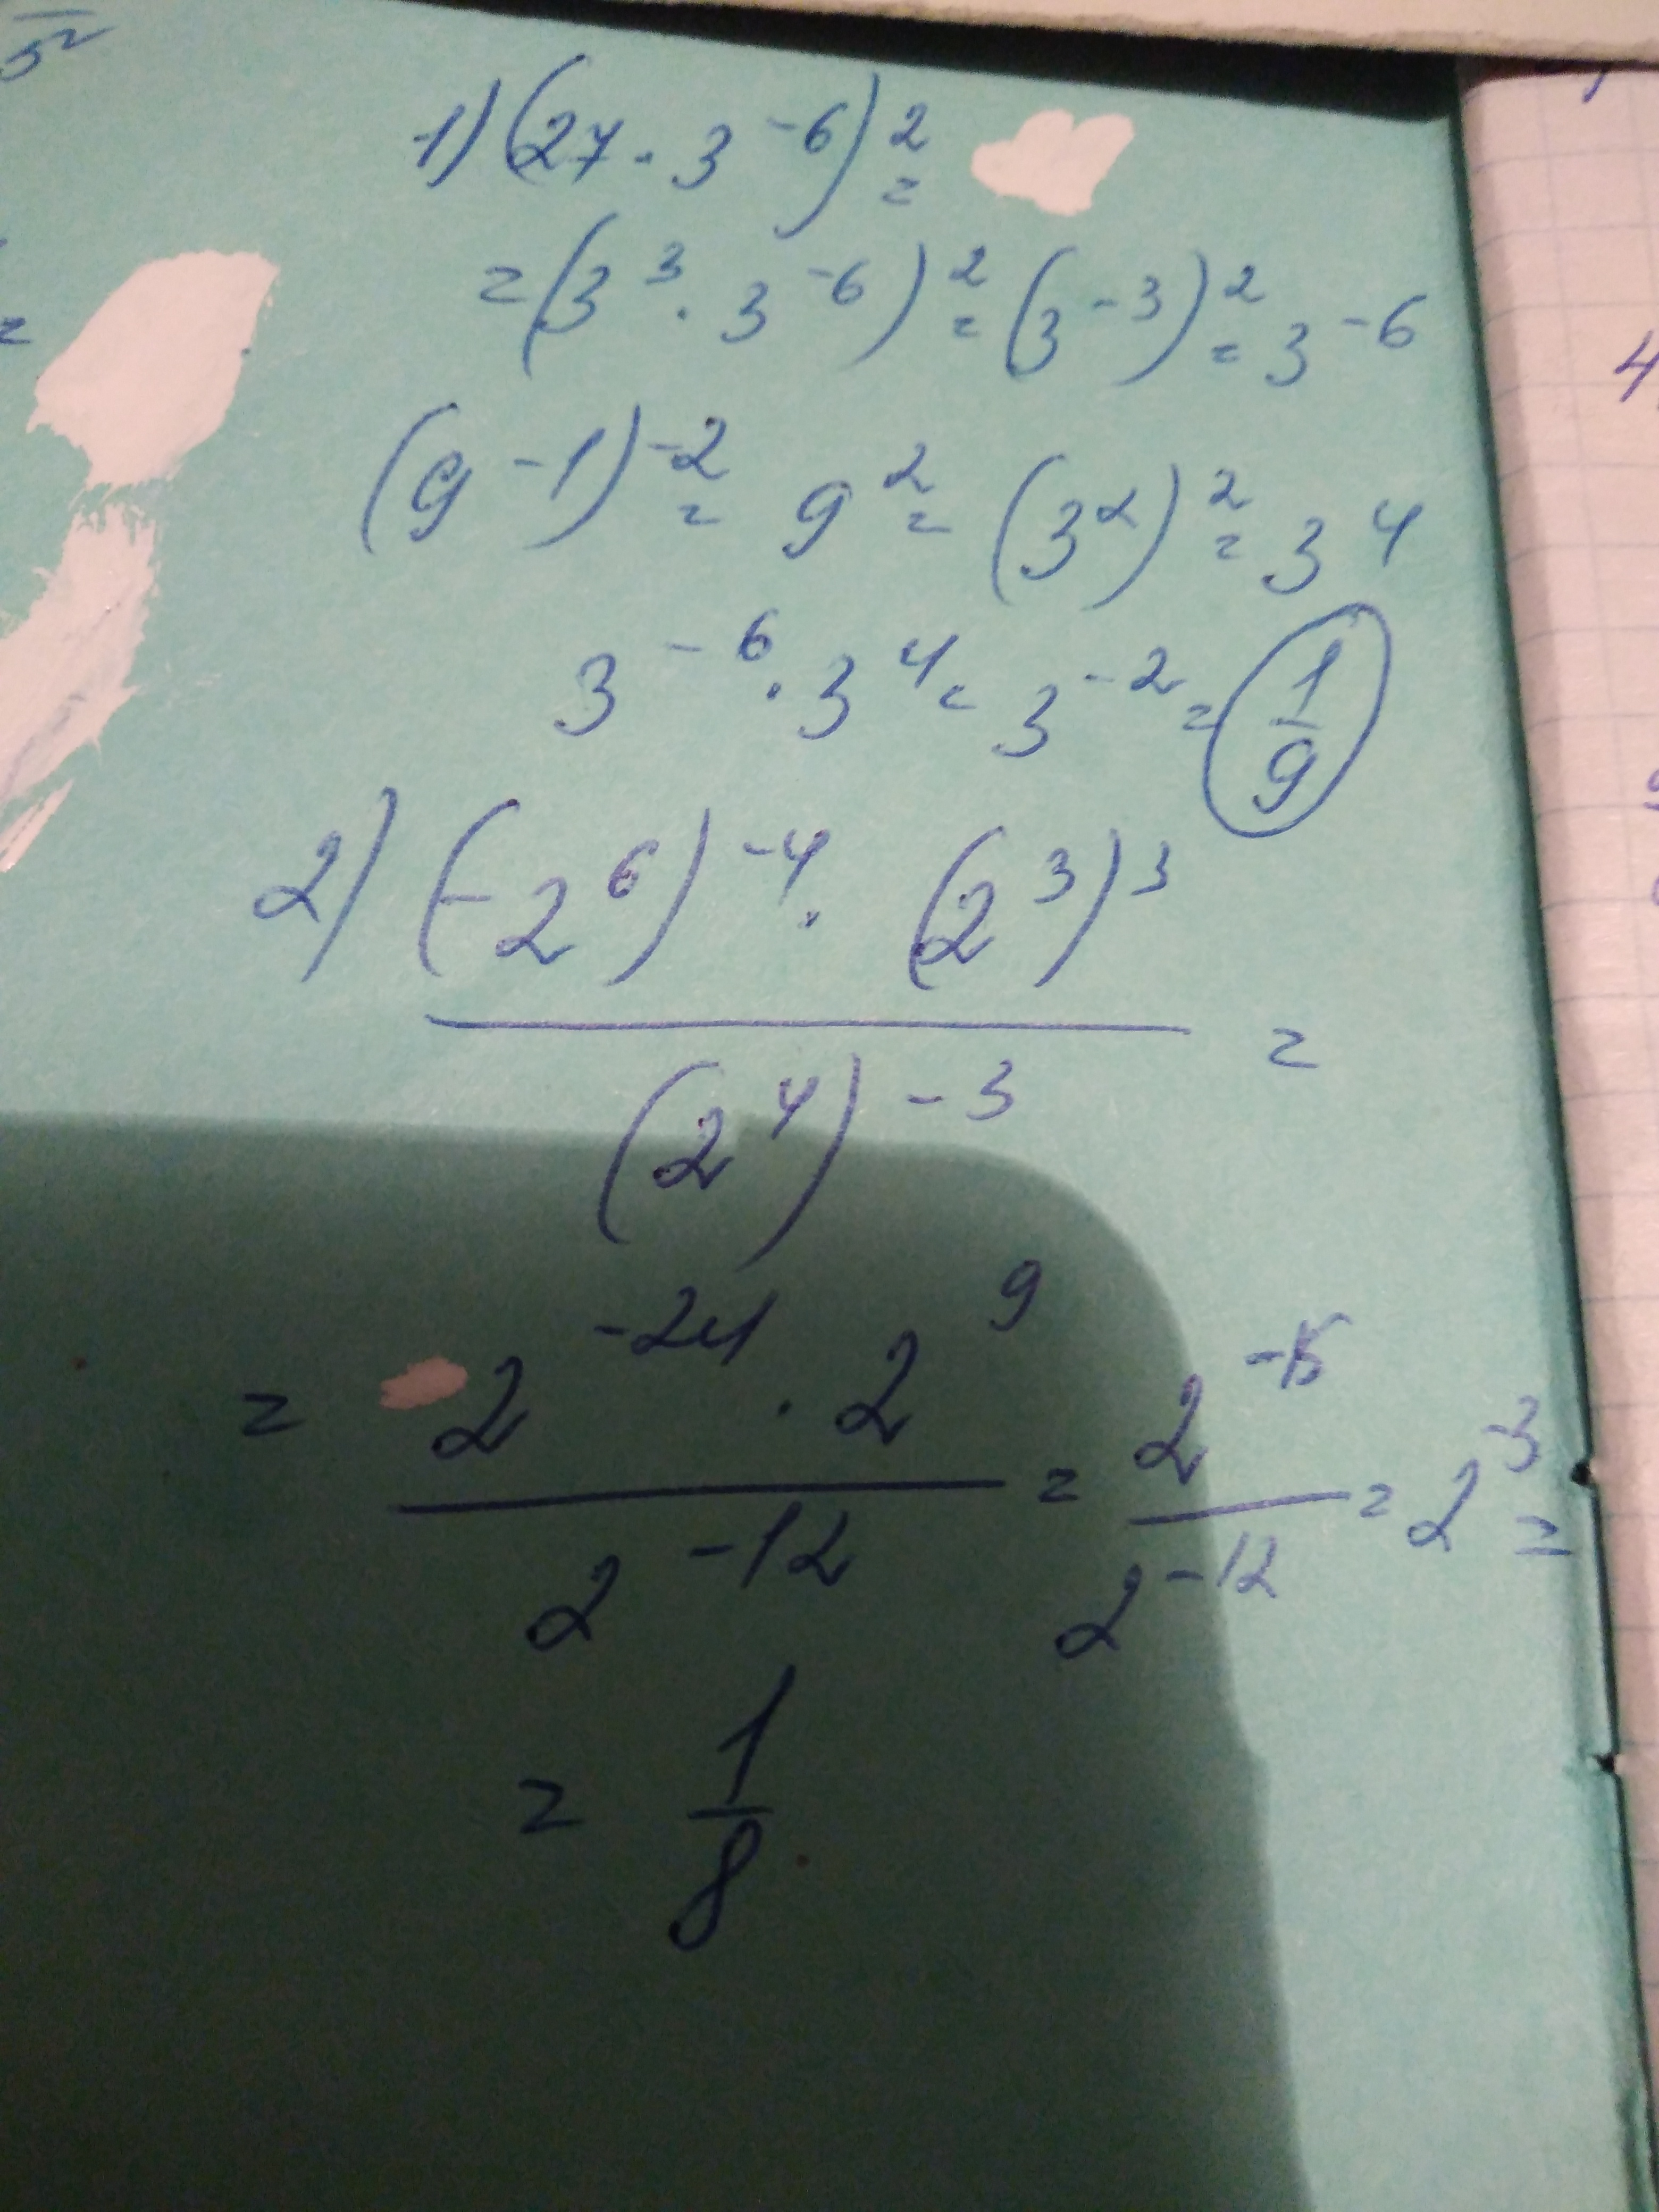 5²
1) (27 · 3⁻⁶)² =
= (3³ · 3⁻⁶)² = (3⁻³)² = 3⁻⁶
(9⁻¹)⁻² = 9² = (3²)² = 3⁴
3⁻⁶ · 3⁴ = 3⁻² = 1/9
2) (-2⁶)⁻⁴ · (2³)³ / (2⁴)⁻³ =
= 2⁻²⁴ · 2⁹ / 2⁻¹² = 2⁻¹⁵ / 2⁻¹² = 2⁻³ =
= 1/8
4